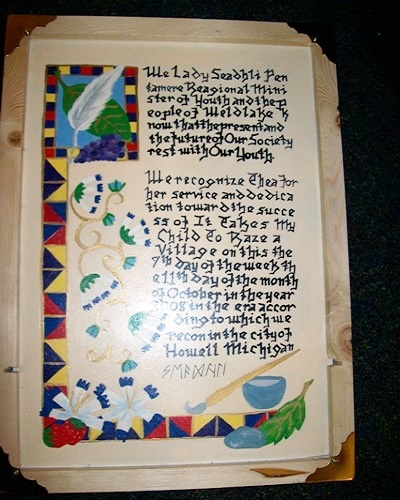 We Lady Seadhli Pen
tamere Reagional Mini
ster of Youth and the p
eople of Weldlake k
now that the present and
the future of Our Society
rest with Our Youth.
We recognize Thea for
her service and dedica
tion toward the succe
ss of It Takes My
Child To Raze a
Village on this the
7th day of the week th
e 11th day of the month
of October in the year
08 in the era accor
ding to which we
recon in the city of
Howell Michigan